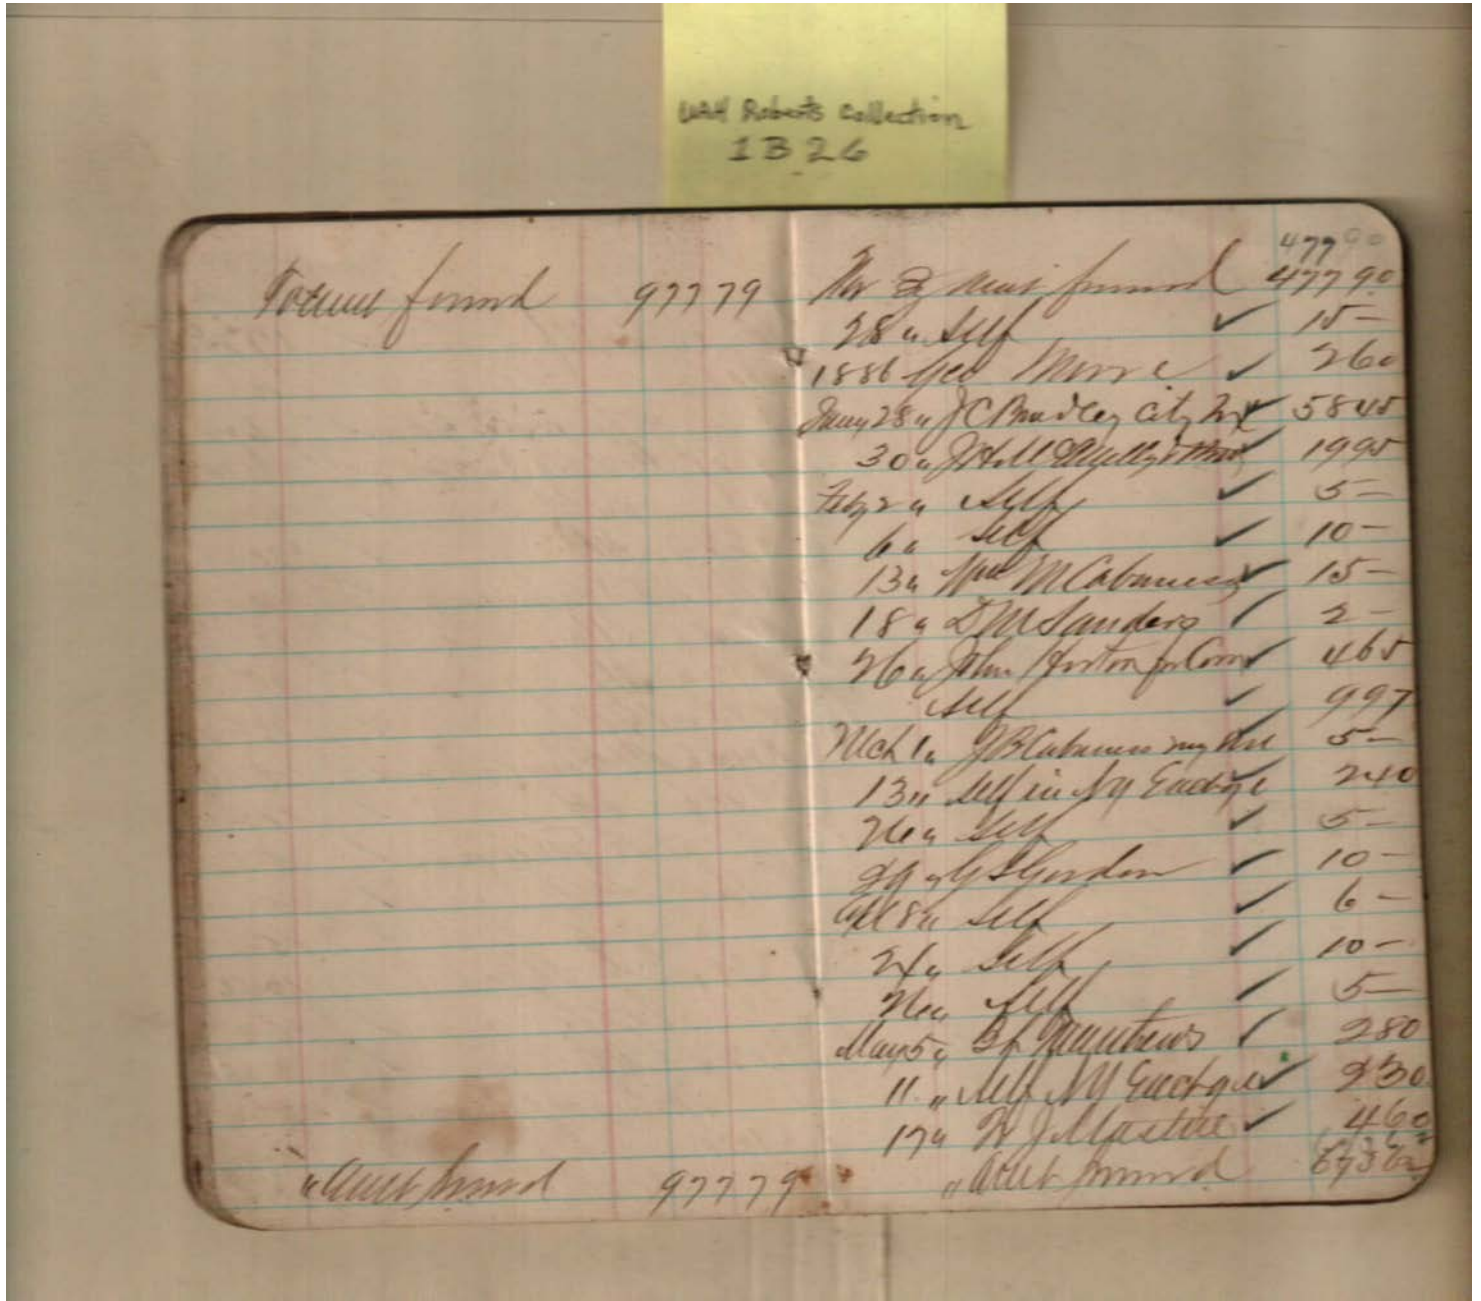 UAH Roberts Collection
1B26
To amt forward 97779
477 90
By amt forward 477 90
28 " Self ✓ 15 –
1886 Geo ✓ 2 60
Jany 28 " J C Bradley City ✓ 58 45
30 " ✓ 19 95
Feby 2 " Self ✓ 5 –
6 " Self ✓ 10 –
13 " Wm M Cabaniss ✓ 15 –
18 " D M Sanders ✓ 2 –
26 " John Horton for Corn ✓ 4 65
Self ✓ 9 97
Mch 1 " J B Cabaniss my ✓ 5 –
13 " Self in NY Exchge ✓ 2 40
" Self ✓ 5 –
29 " G S Gordon ✓ 10 –
Apl 8 " Self ✓ 6 –
" Self ✓ 10 –
" Self ✓ 5 –
May 5 " Matthews ✓ 2 80
11 " Self NY Exchge ✓ 30
17 " W J ✓ 4 60
" Amt forward 97779
" Amt forward